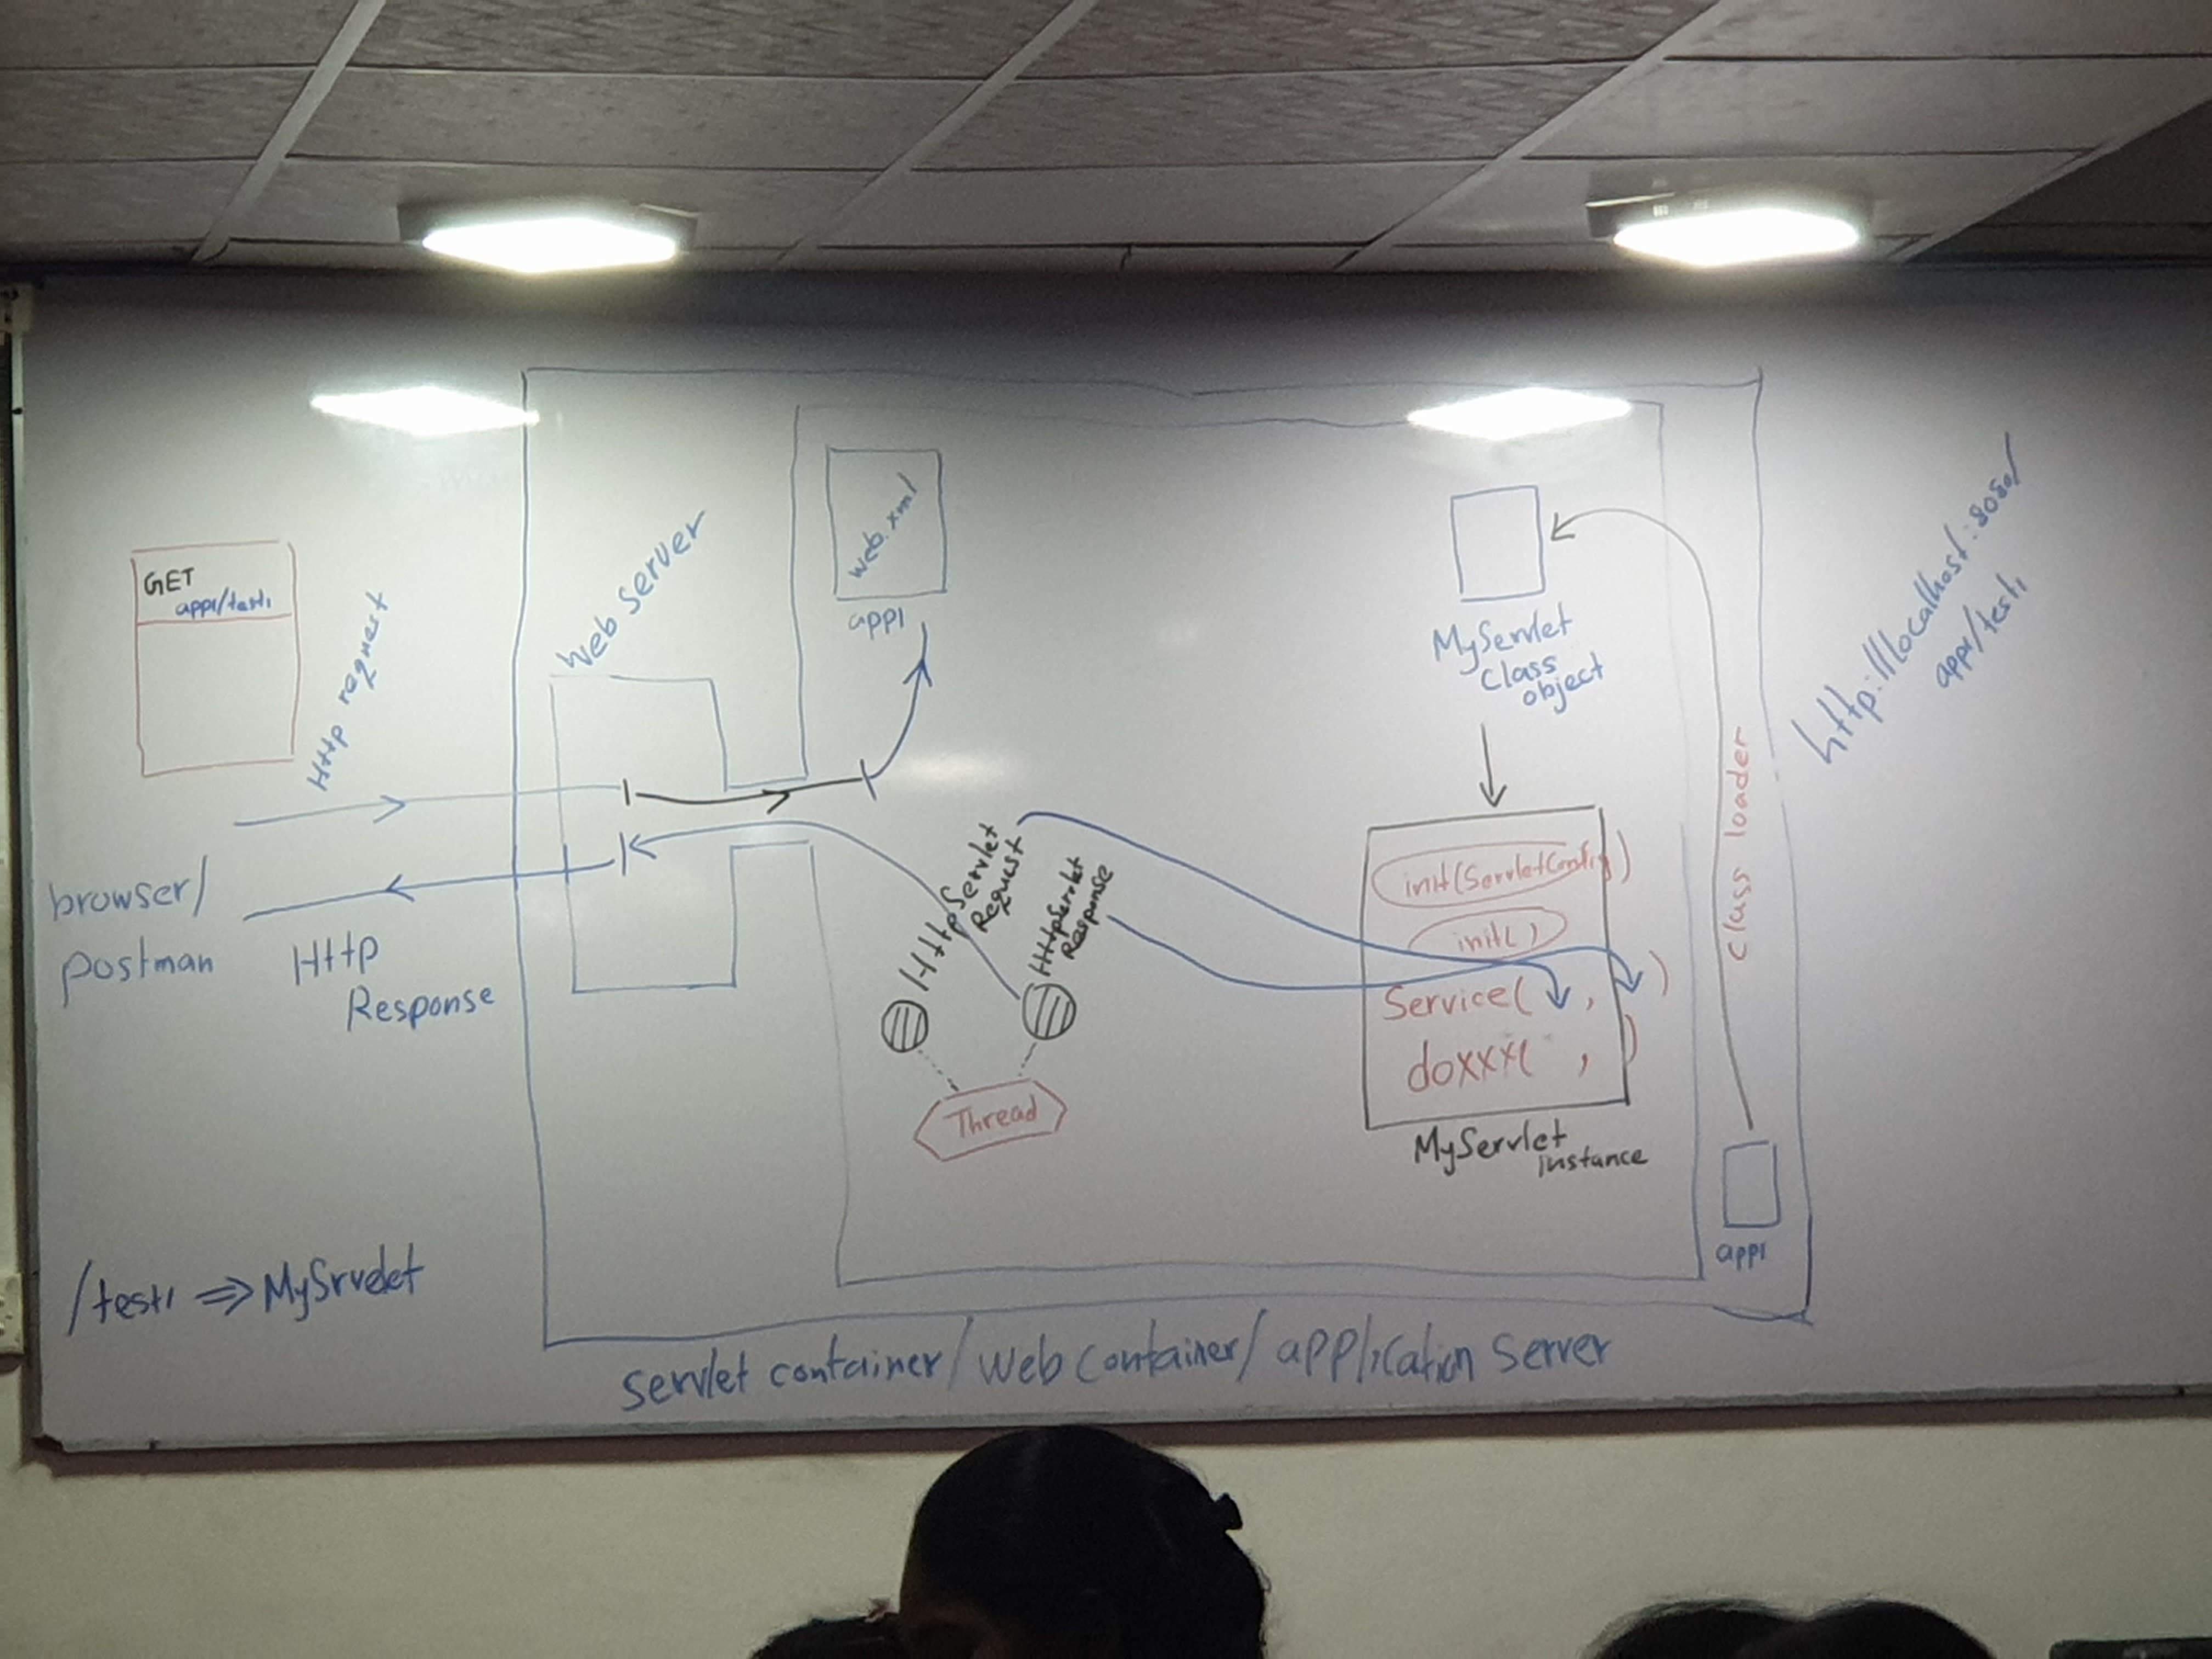 GET
app1/test1
Http request
browser/
postman
Http
Response
/test1 ⇒ MySrvelet
Web Server
web.xml
app1
HttpServlet
Request
HttpServlet
Response
Thread
MyServlet
Class
object
init(ServletConfig)
init( )
Service( , )
doxxx( , )
MyServlet
instance
Class loader
app1
http://localhost:8080/
app1/test1
servlet container/web container/application server